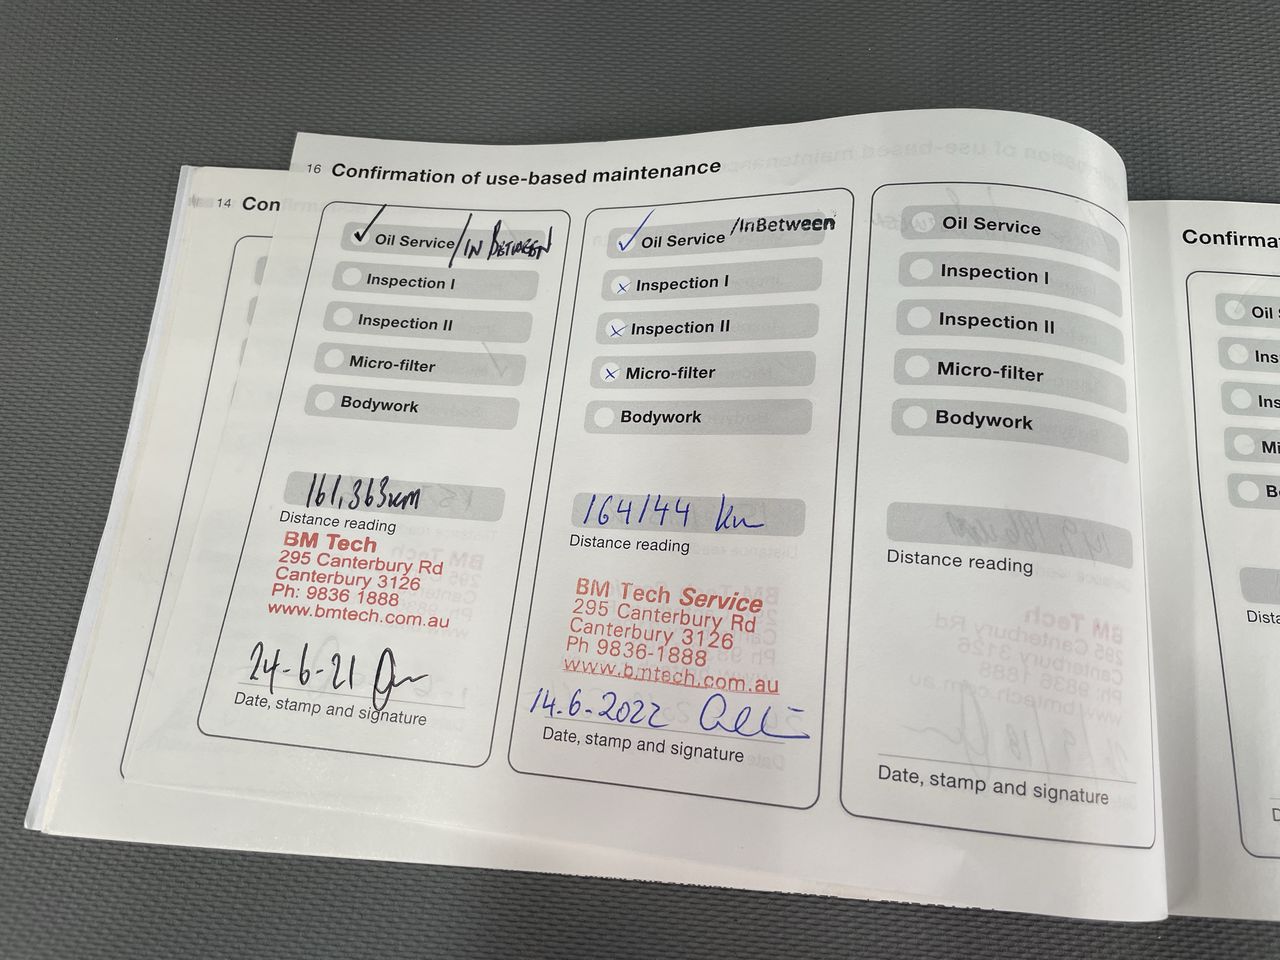 16 Confirmation of use-based maintenance
14 Con
✓ Oil Service / IN BETWEEN
Inspection I
Inspection II
Micro-filter
Bodywork
161,363km
Distance reading
BM Tech
295 Canterbury Rd
Canterbury 3126
Ph: 9836 1888
www.bmtech.com.au
24-6-21
Date, stamp and signature
✓ Oil Service /InBetween
x Inspection I
x Inspection II
x Micro-filter
Bodywork
164144 km
Distance reading
BM Tech Service
295 Canterbury Rd
Canterbury 3126
Ph 9836-1888
www.bmtech.com.au
14.6.2022
Date, stamp and signature
Oil Service
Inspection I
Inspection II
Micro-filter
Bodywork
Distance reading
Date, stamp and signature
Confirma
Oil
Ins
Ins
Mi
B
Dista
D